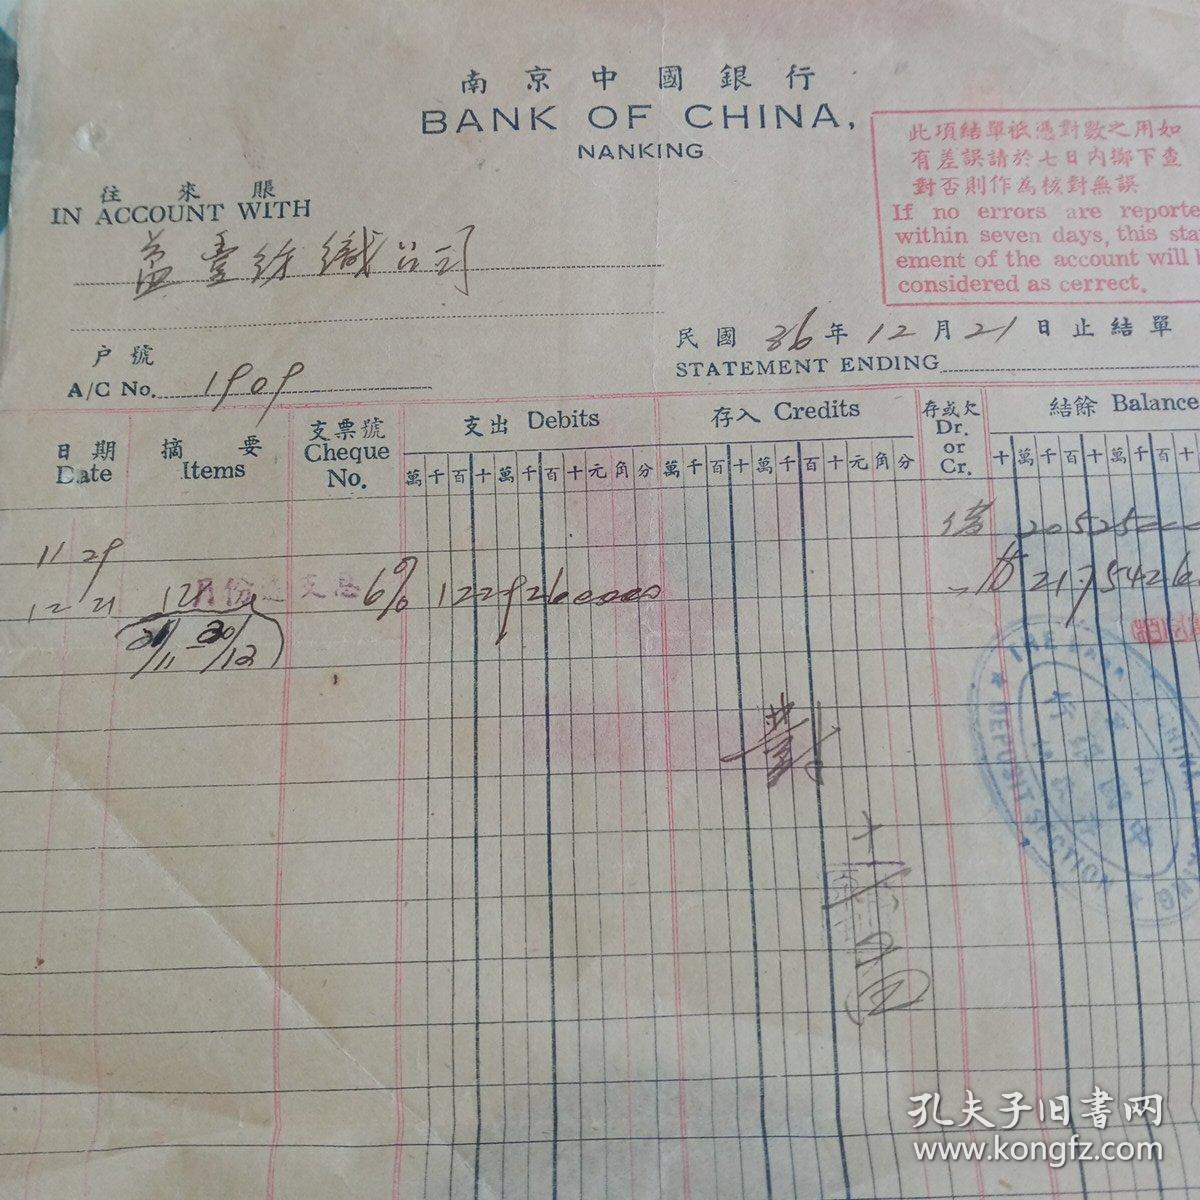 南京中國銀行
BANK OF CHINA,
NANKING
此項結單祇憑對數之用如
有差誤請於七日內擲下查
對否則作為核對無誤
If no errors are reporte
within seven days, this sta
ement of the account will b
considered as cerrect.
往來賬
IN ACCOUNT WITH
公司
民國 36 年 12 月 21 日止結單
STATEMENT ENDING
户號
A/C No. 1909
日期 Date
摘要 Items
支票號 Cheque No.
支出 Debits
存入 Credits
存或欠 Dr. or Cr.
結餘 Balance
萬千百十萬千百十元角分 萬千百十萬千百十元角分 十萬千百十萬千百十
11 29
12 21 12月份 支息 6%
21/11 - 20/12
DEPOSIT SECTION
孔夫子旧书网
www.kongfz.com